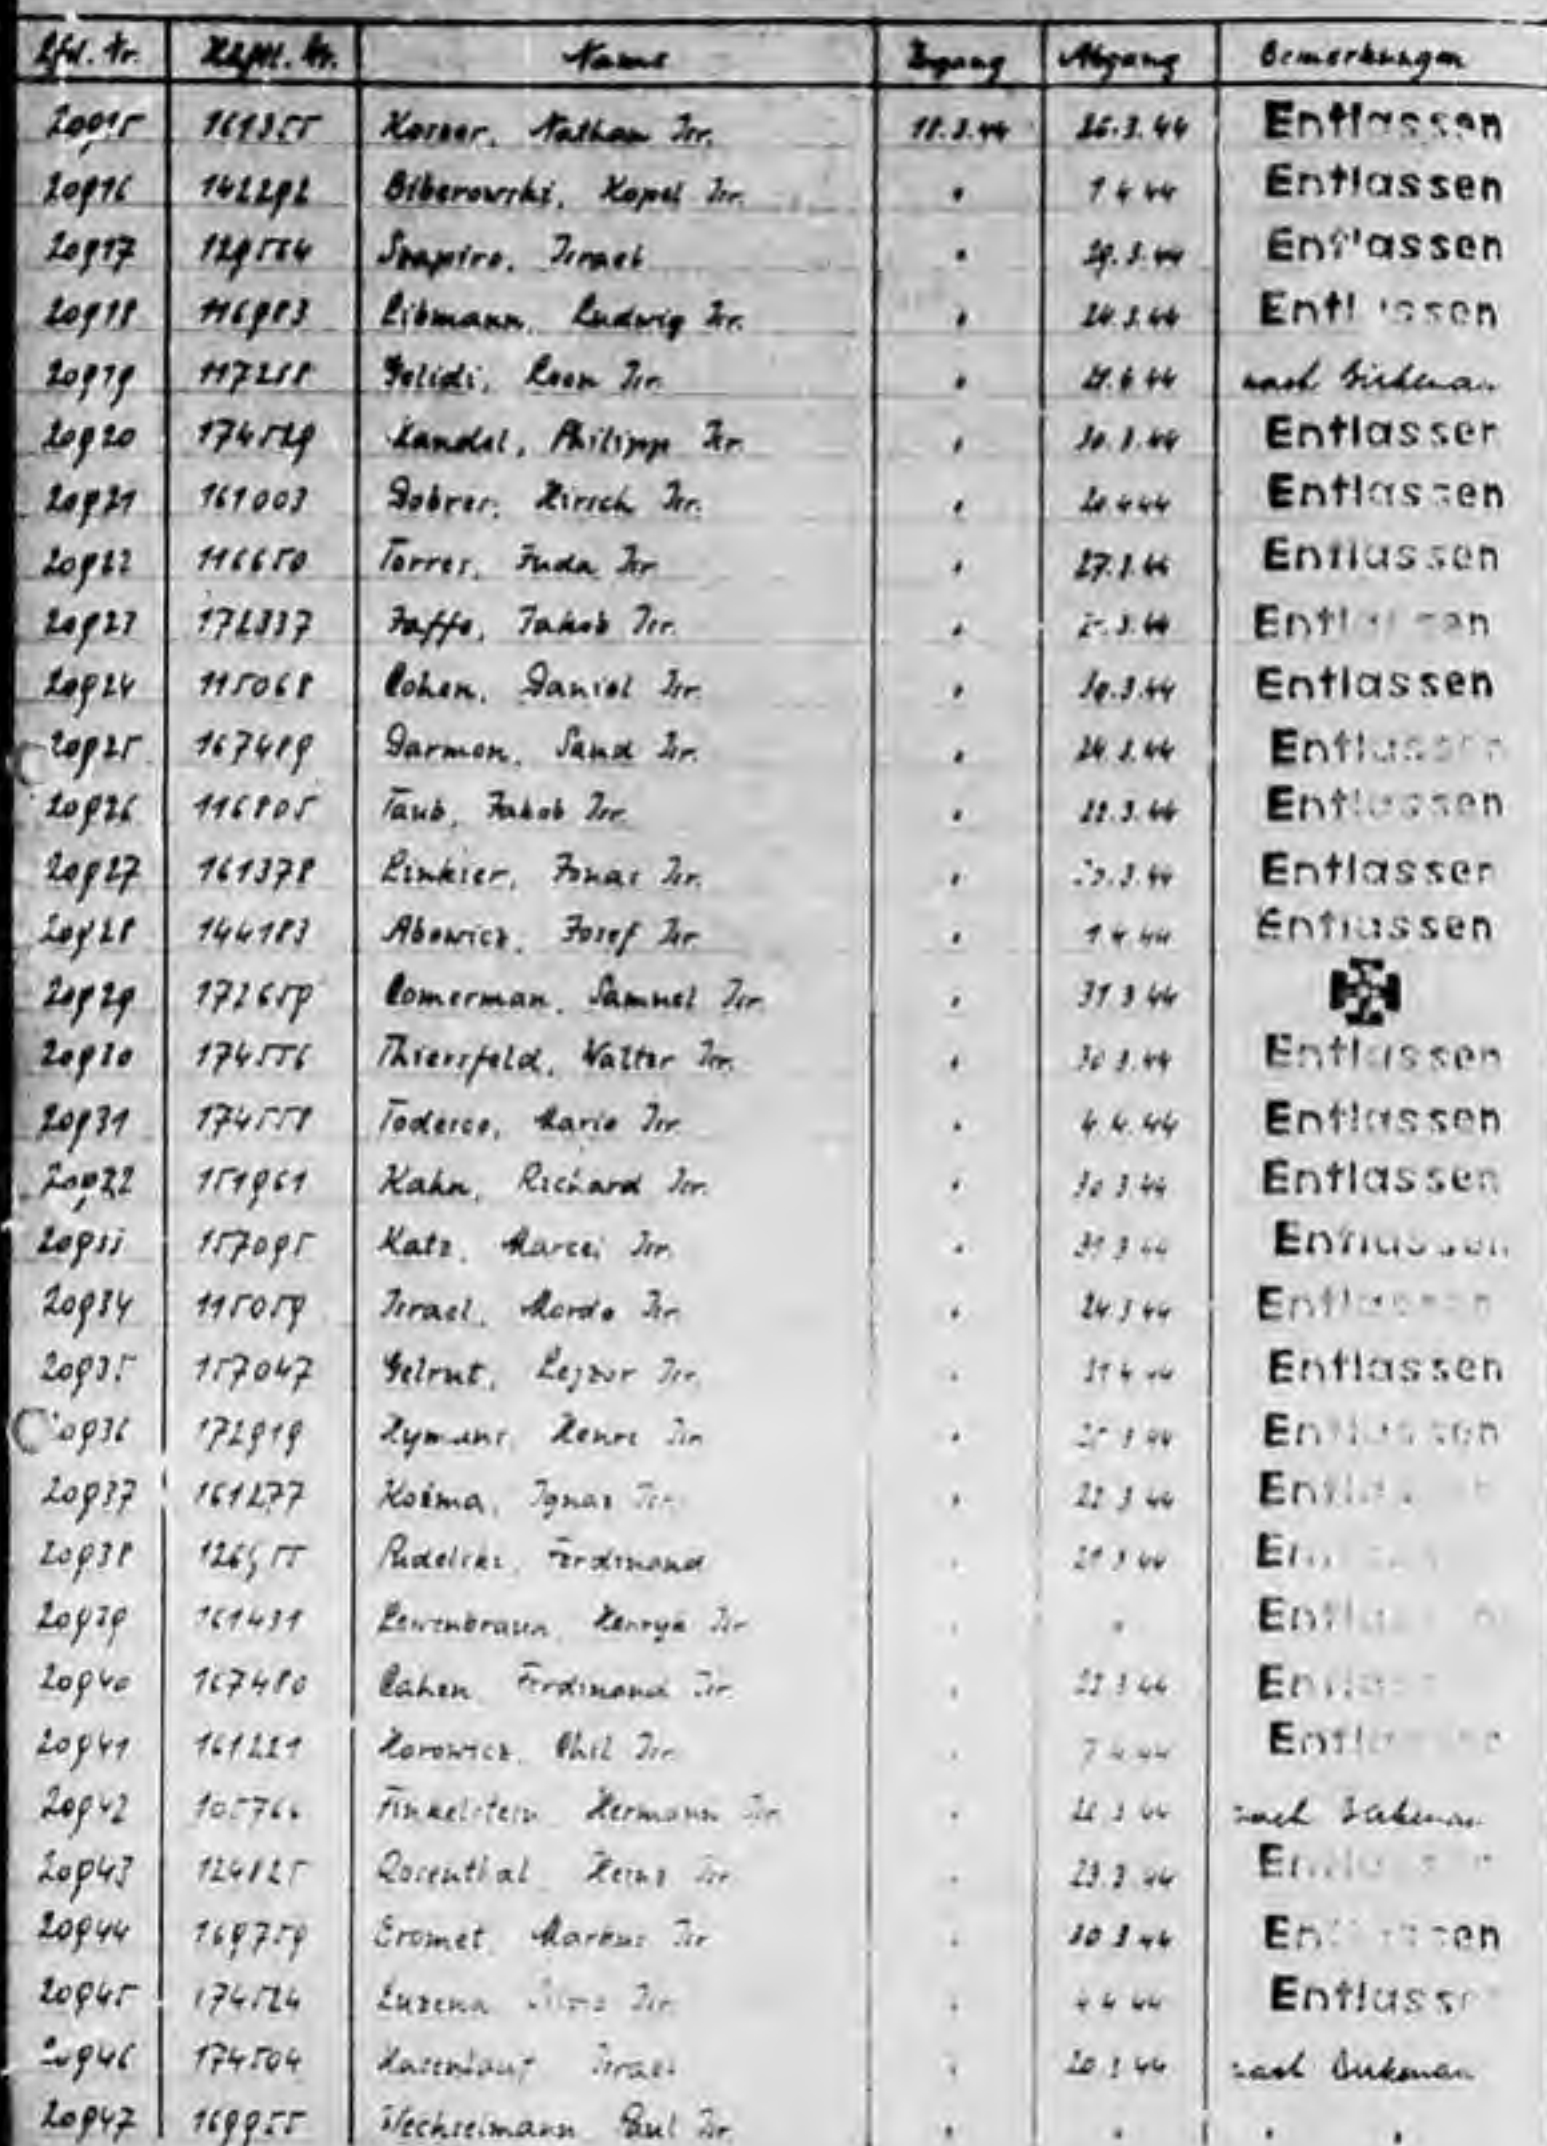 Lfd. Nr. Häftl. Nr. Name Zugang Abgang Bemerkungen
20915 161355 Korser, Nathan Isr. 18.3.44 26.3.44 Entlassen
20916 142292 Biberowski, Kopel Isr. " 1.4.44 Entlassen
20917 129564 Szapiro, Israel " 29.3.44 Entlassen
20918 116983 Libmann, Ludwig Isr. " 24.3.44 Entlassen
20919 117258 Gelidi, Leon Isr. " nach Birkenau
20920 174529 Kandel, Philipp Isr. " 30.3.44 Entlassen
20921 161003 Dobrer, Hirsch Isr. " 20.4.44 Entlassen
20922 116650 Torres, Juda Isr. " 27.3.44 Entlassen
20923 172337 Jaffe, Jakob Isr. " Entlassen
20924 115068 Cohen, Daniel Isr. " 30.3.44 Entlassen
20925 167489 Darmon, Saud Isr. " 24.3.44 Entlassen
20926 116805 Taub, Jakob Isr. " 22.3.44 Entlassen
20927 161378 Linkier, Jonas Isr. " Entlassen
20928 144183 Abowicz, Josef Isr. " 1.4.44 Entlassen
20929 172659 Comerman, Samuel Isr. " 31.3.44
20930 174556 Thiersfeld, Walter Isr. " 30.3.44 Entlassen
20931 174558 Todesco, Mario Isr. " 4.4.44 Entlassen
20932 151961 Kahn, Richard Isr. " 30.3.44 Entlassen
20933 157095 Katz, Marcei Isr. " 31.3.44 Entlassen
20934 115059 Israel, Mordo Isr. " 24.3.44 Entlassen
20935 157047 Gelrut, Lejzor Isr. " Entlassen
20936 172919 Hymans, Henri Isr. " Entlassen
20937 161277 Kozma, Ignaz Isr. " 22.3.44 Entlassen
20938 Ferdinand " 21.3.44
20939 161431 Lewenbraun, Henryk Isr. " " Entlassen
20940 167480 Cahen, Ferdinand Isr. " 22.3.44 Entlassen
20941 161221 Horowicz, Chil Isr. " 7.4.44 Entlassen
20942 105766 Finkelstein, Hermann Isr. " nach Birkenau
20943 124825 Rosenthal, Heinz Isr. " 23.3.44 Entlassen
20944 169759 Cromet, Markus Isr. " 30.3.44 Entlassen
20945 174524 Luzena Isr. " 4.4.44 Entlassen
20946 174504 Israel " 20.3.44 nach Birkenau
20947 169955 Wechselmann, Paul Isr. " " " "